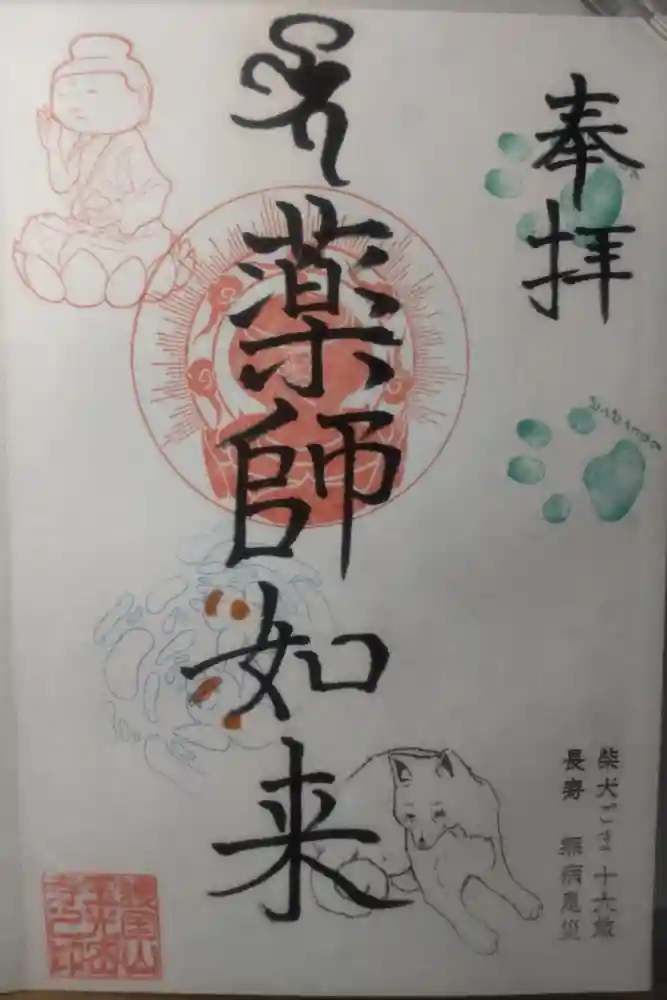 奉拝
薬師如来
柴犬ごま 十六歳
長寿 無病息災